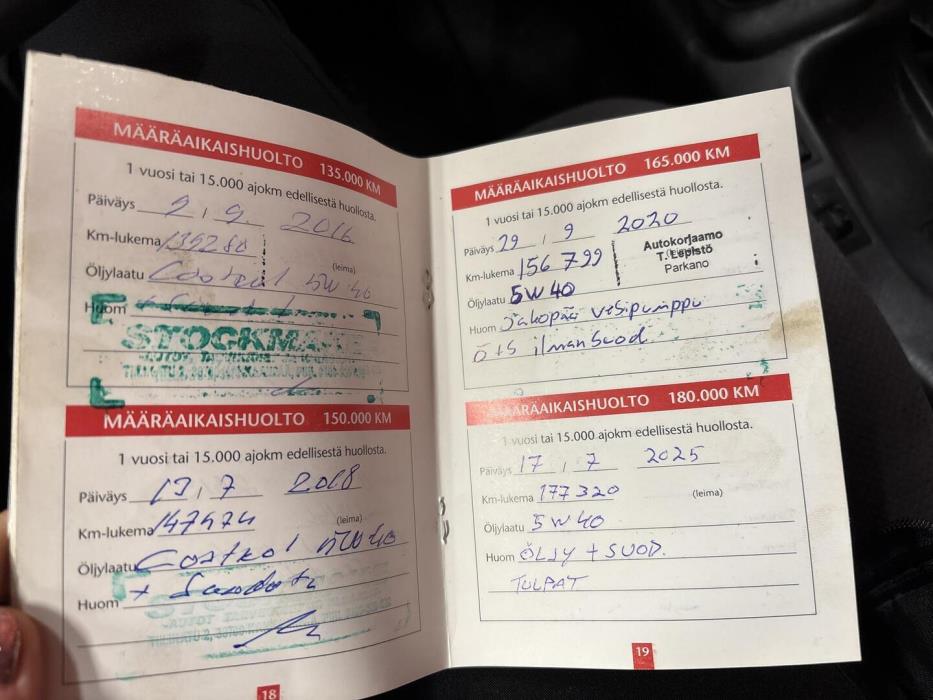 MÄÄRÄAIKAISHUOLTO 135.000 KM
1 vuosi tai 15.000 ajokm edellisestä huollosta.
Päiväys 9 , 9 2016
Km-lukema 139280
(leima)
Öljylaatu Castrol 5W40
Huom
STOCKM
MÄÄRÄAIKAISHUOLTO 150.000 KM
1 vuosi tai 15.000 ajokm edellisestä huollosta.
Päiväys 19, 7 2018
Km-lukema 147474
(leima)
Öljylaatu Castrol 5W40
Huom + Suodatin
18
MÄÄRÄAIKAISHUOLTO 165.000 KM
1 vuosi tai 15.000 ajokm edellisestä huollosta.
Päiväys 29 , 9 2020
Km-lukema 156 799
Autokorjaamo
(leima)
T. Lepistö
Parkano
Öljylaatu 5W40
Huom Jakopää vesipumppu
Ö+S ilmansuod
MÄÄRÄAIKAISHUOLTO 180.000 KM
1 vuosi tai 15.000 ajokm edellisestä huollosta.
Päiväys 17 , 7 2025
Km-lukema 177320
(leima)
Öljylaatu 5W40
Huom ÖLJY + SUOD.
TULPAT
19